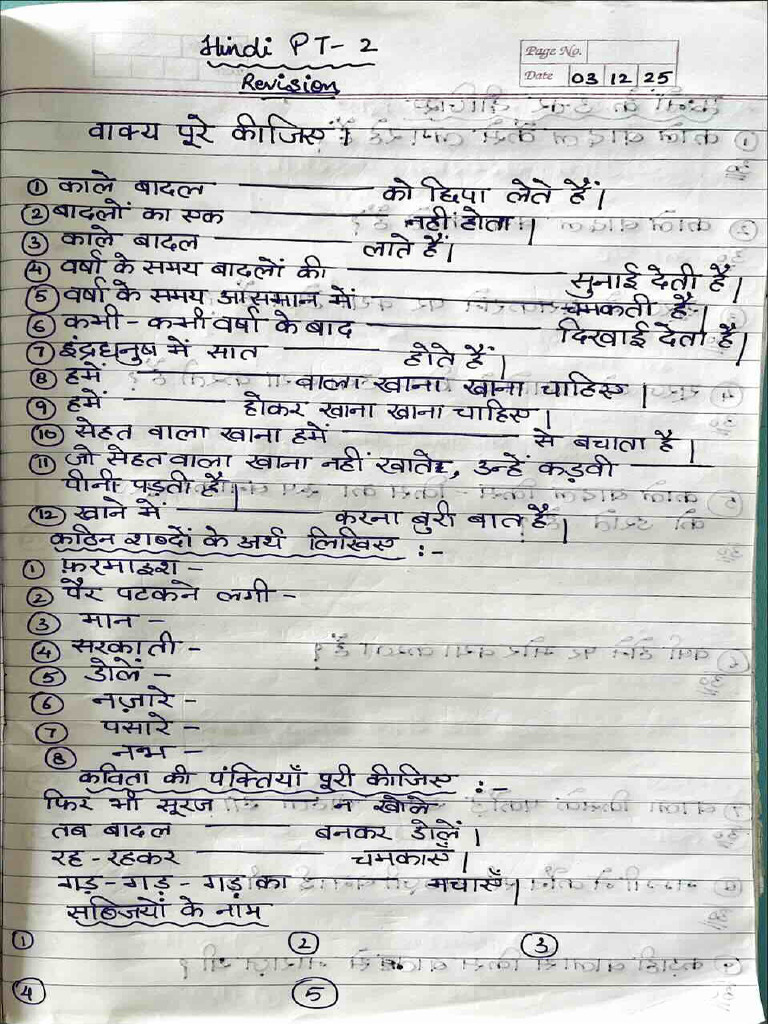 Hindi PT-2
Revision
Page No.
Date 03 12 25
वाक्य पूरे कीजिए।
① काले बादल ________ को छिपा लेते हैं।
② बादलों का एक ________ नहीं होता।
③ काले बादल ________ लाते हैं।
④ वर्षा के समय बादलों की ________ सुनाई देती है।
⑤ वर्षा के समय आसमान में ________ चमकती है।
⑥ कभी-कभी वर्षा के बाद ________ दिखाई देता है।
⑦ इंद्रधनुष में सात ________ होते हैं।
⑧ हमें ________ वाला खाना खाना चाहिए।
⑨ हमें ________ होकर खाना खाना चाहिए।
⑩ सेहत वाला खाना हमें ________ से बचाता है।
⑪ जो सेहत वाला खाना नहीं खाते, उन्हें कड़वी ________
पीनी पड़ती है।
⑫ खाने में ________ करना बुरी बात है।
कठिन शब्दों के अर्थ लिखिए :-
① फ़रमाइश -
② पैर पटकने लगी -
③ मान -
④ सरकाती -
⑤ डोलें -
⑥ नज़ारे -
⑦ पसारे -
⑧ नभ -
कविता की पंक्तियाँ पूरी कीजिए :-
फिर भी सूरज ________ न खोले
तब बादल ________ बनकर डोलें।
रह-रहकर ________ चमकाएँ।
गड़-गड़-गड़ का ________ मचाएँ।
सब्जियों के नाम
① ② ③
④ ⑤